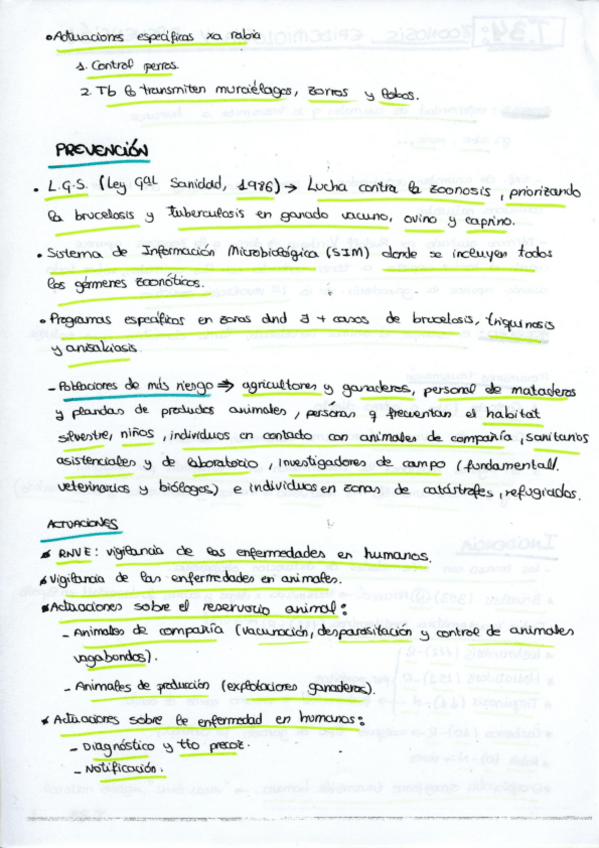 • Actuaciones específicas xa rabia
1. Control perros.
2. Tb lo transmiten murciélagos, zorros y lobos.
PREVENCIÓN
• L.G.S. (Ley Gal Sanidad, 1986) → Lucha contra la zoonosis, priorizando
la brucelosis y tuberculosis en ganado vacuno, ovino y caprino.
• Sistema de Información Microbiológica (SIM) donde se incluyen todos
los gérmenes zoonóticos.
• Programas específicos en zonas dnd J + casos de brucelosis, triquinosis
y anisakiasis.
- Poblaciones de más riesgo ⇒ agricultores y ganaderos, personal de mataderos
y plandas de productos animales, personas q frecuentan el habitat
silvestre, niños, individuos en contacto con animales de compañía, sanitarios
asistenciales y de laboratorio, investigadores de campo (fundamentall.
veterinarios y biólogos) e individuos en zonas de catástrofes, refugiados.
ACTUACIONES
* RNVE: vigilancia de las enfermedades en humanos.
* Vigilancia de las enfermedades en animales.
* Actuaciones sobre el reservorio animal:
- Animales de compañía (vacunación, desparasitación y control de animales
vagabundos).
- Animales de producción (explotaciones ganaderas).
* Actuaciones sobre la enfermedad en humanos:
- Diagnóstico y tto precoz.
- Notificación.